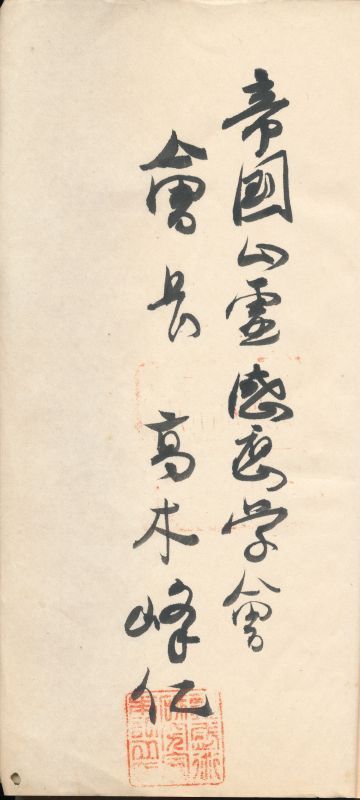 帝國心霊感応学會
會長 高木峰仁